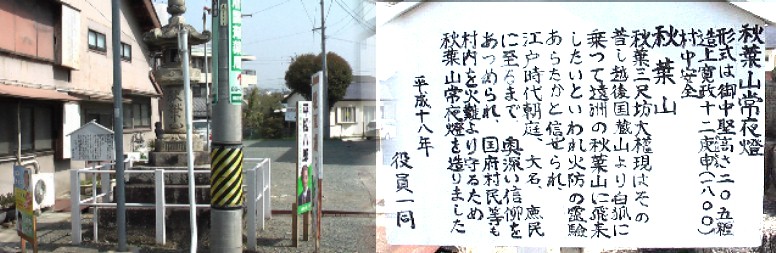 秋葉山常夜燈
形式は御中竪高さ二〇五糎
造上寛政十二庚申(一八〇〇)
村中安全
秋葉山
秋葉三尺坊大権現はその
昔し越後国蔵山より白狐に
乗つて遠洲の秋葉山に飛来
したいといわれ火防の霊験
あらたかと信ぜられ
江戸時代朝庭、大名、庶民
に至るまで 奥深い信仰を
あつめられ、国府村民等も
村内を火難より守るため
秋葉山常夜燈を造りました
平成十八年
役員一同